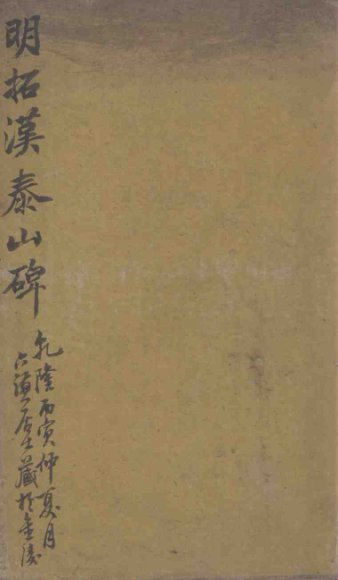 明拓漢泰山碑
乾隆丙寅仲夏月
居士藏於金陵